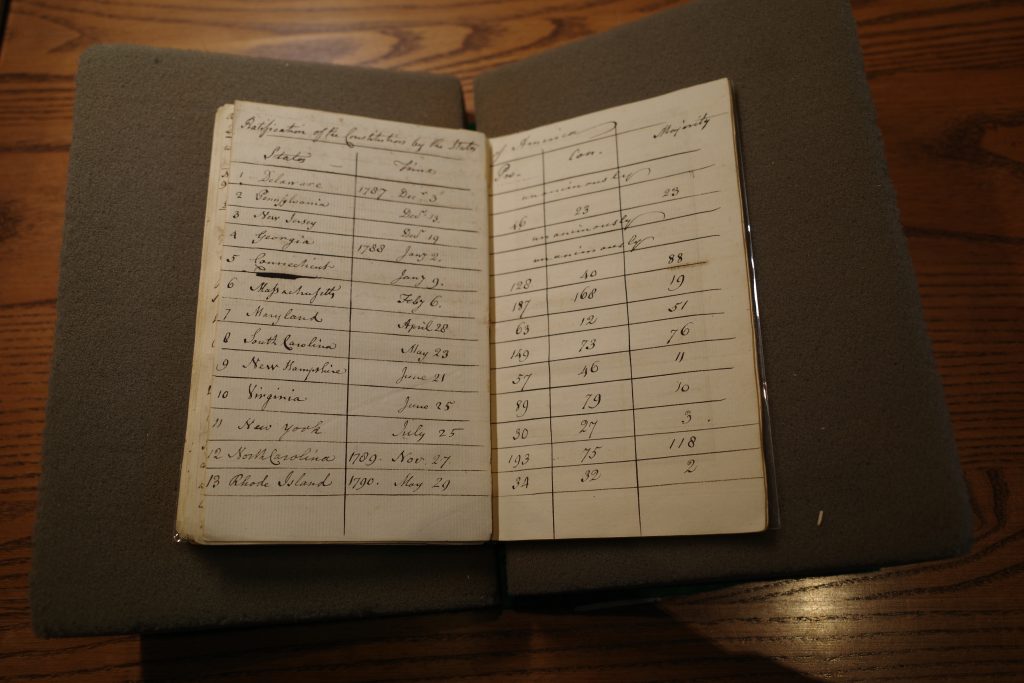 Ratification of the Constitution by the States of America
States Time Pro. Con. Majority
1 Delaware 1787 Decr. 3 unanimously
2 Pennsylvania Decr. 13 46 23 23
3 New Jersey Decr. 19 unanimously
4 Georgia 1788 Jany 2. unanimously
5 Connecticut Jany 9. 128 40 88
6 Massachusetts Feby 6. 187 168 19
7 Maryland April 28 63 12 51
8 South Carolina May 23 149 73 76
9 New Hampshire June 21 57 46 11
10 Virginia June 25 89 79 10
11 New york July 25 30 27 3
12 North Carolina 1789. Nov. 27. 193 75 118
13 Rhode Island 1790. May 29 34 32 2